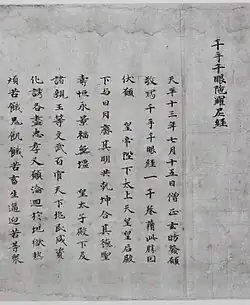 千手千眼陀羅尼經
天平十三年七月十五日僧正玄昉發願
敬寫千手千眼經一千卷藉此勝因
伏願 皇帝陛下太上天皇皇后殿
下与日月齊其明共乾坤合其德聖
壽恒永景福無壃 皇太子殿下及
諸親王等文武百官天下兆民咸資
化誘各盡忠孝又願淪迴於地獄熱
煩苦餓鬼飢餓苦畜生逼迫苦等衆